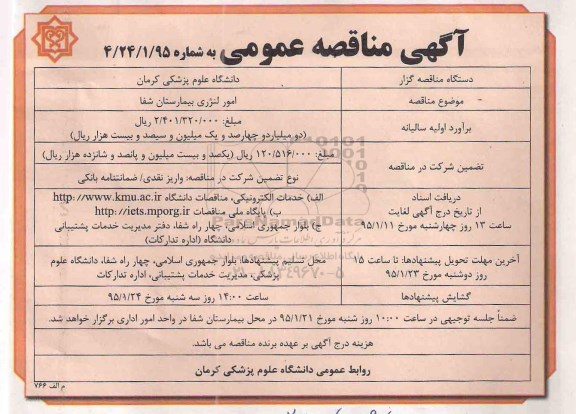 آگهی مناقصه عمومی به شماره ۴/۲۴/۱/۹۵
دستگاه مناقصه گزار
دانشگاه علوم پزشکی کرمان
- موضوع مناقصه
امور لنژری بیمارستان شفا
برآورد اولیه سالیانه
مبلغ: ۲/۴۰۱/۳۲۰/۰۰۰ ریال
(دو میلیاردو چهارصد و یک میلیون و سیصد و بیست هزار ریال)
تضمین شرکت در مناقصه
مبلغ: ۱۲۰/۵۱۶/۰۰۰ ریال (یکصد و بیست میلیون و پانصد و شانزده هزار ریال)
نوع تضمین شرکت در مناقصه: واریز نقدی/ ضمانتنامه بانکی
دریافت اسناد
از تاریخ درج آگهی لغایت
ساعت ۱۳ روز چهارشنبه مورخ ۹۵/۱/۱۱
الف) خدمات الکترونیکی، مناقصات دانشگاه http://www.kmu.ac.ir
ب) پایگاه ملی مناقصات http://iets.mporg.ir
ج) بلوار جمهوری اسلامی، چهار راه شفا، دفتر مدیریت خدمات پشتیبانی
دانشگاه (اداره تدارکات)
آخرین مهلت تحویل پیشنهادها: تا ساعت ۱۵
روز دوشنبه مورخ ۹۵/۱/۲۳
محل تسلیم پیشنهادها: بلوار جمهوری اسلامی، چهار راه شفا، دانشگاه علوم
پزشکی، مدیریت خدمات پشتیبانی، اداره تدارکات
گشایش پیشنهادها
ساعت ۱۴:۰۰ روز سه شنبه مورخ ۹۵/۱/۲۴
ضمناً جلسه توجیهی در ساعت ۱۰:۰۰ روز شنبه مورخ ۹۵/۱/۲۱ در محل بیمارستان شفا در واحد امور اداری برگزار خواهد شد.
هزینه درج آگهی بر عهده برنده مناقصه می باشد.
روابط عمومی دانشگاه علوم پزشکی کرمان
م الف ۷۶۶
ParsNamadData